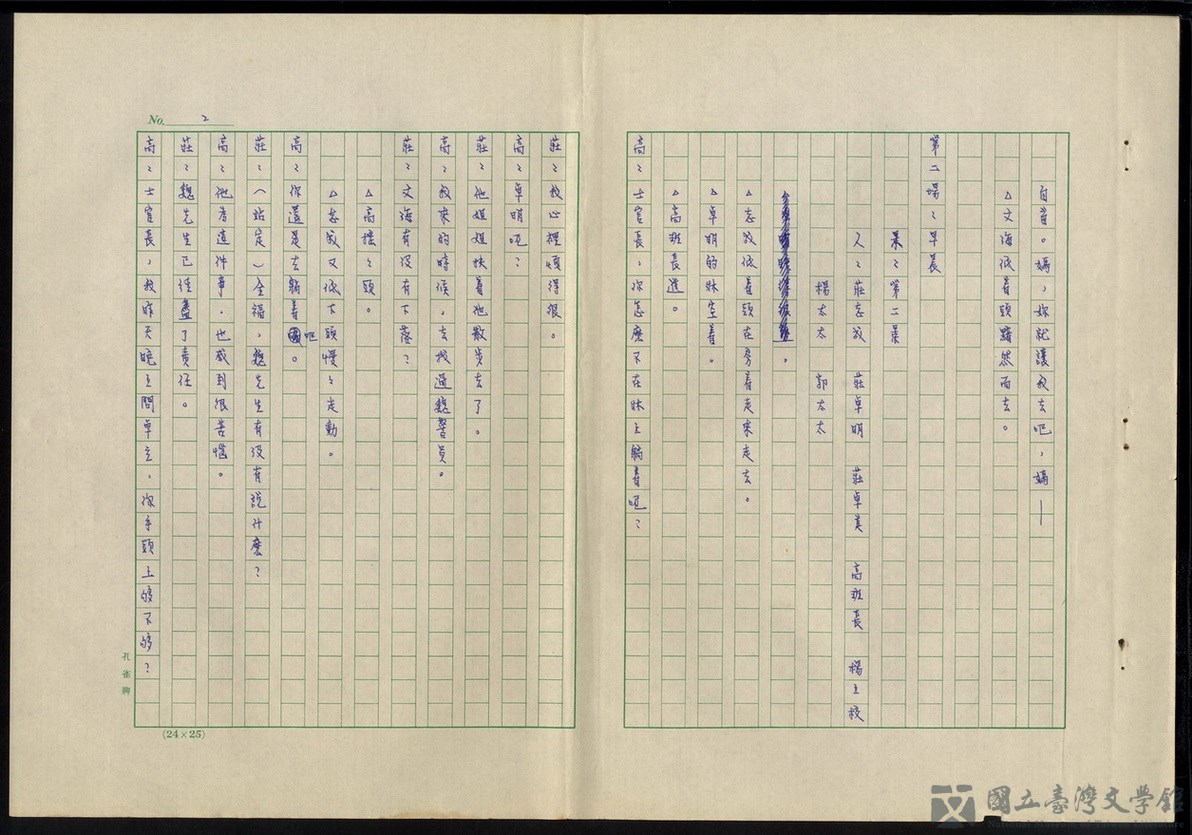 自首。媽，妳就讓我去吧，媽——
△文海低着頭黯然而去。
第二場：早晨
景：第二景
人：莊志敏　莊卓明　莊卓美　高班長　楊上校
楊太太　郭太太
△志敏低着頭在旁着走來走去。
△卓明的床空着。
△高班長進。
高：士官長，你怎麼不在床上躺着呢？
No. 2
莊：我心裡煩得很。
高：卓明呢？
莊：他姐姐扶着他散步去了。
高：我來的時候，去找過魏警員。
莊：文海有没有下落？
△高搖搖頭。
△志敏又低下頭慢慢走動。
高：你還是去躺着吧。
莊：（站定）全福，魏先生有没有説什麽？
高：他為這件事，也感到很苦惱。
莊：魏先生已經盡了責任。
高：士官長，我昨天晚上問卓立，你手頭上够不够？
孔雀牌
(24×25)
國立臺灣文學館